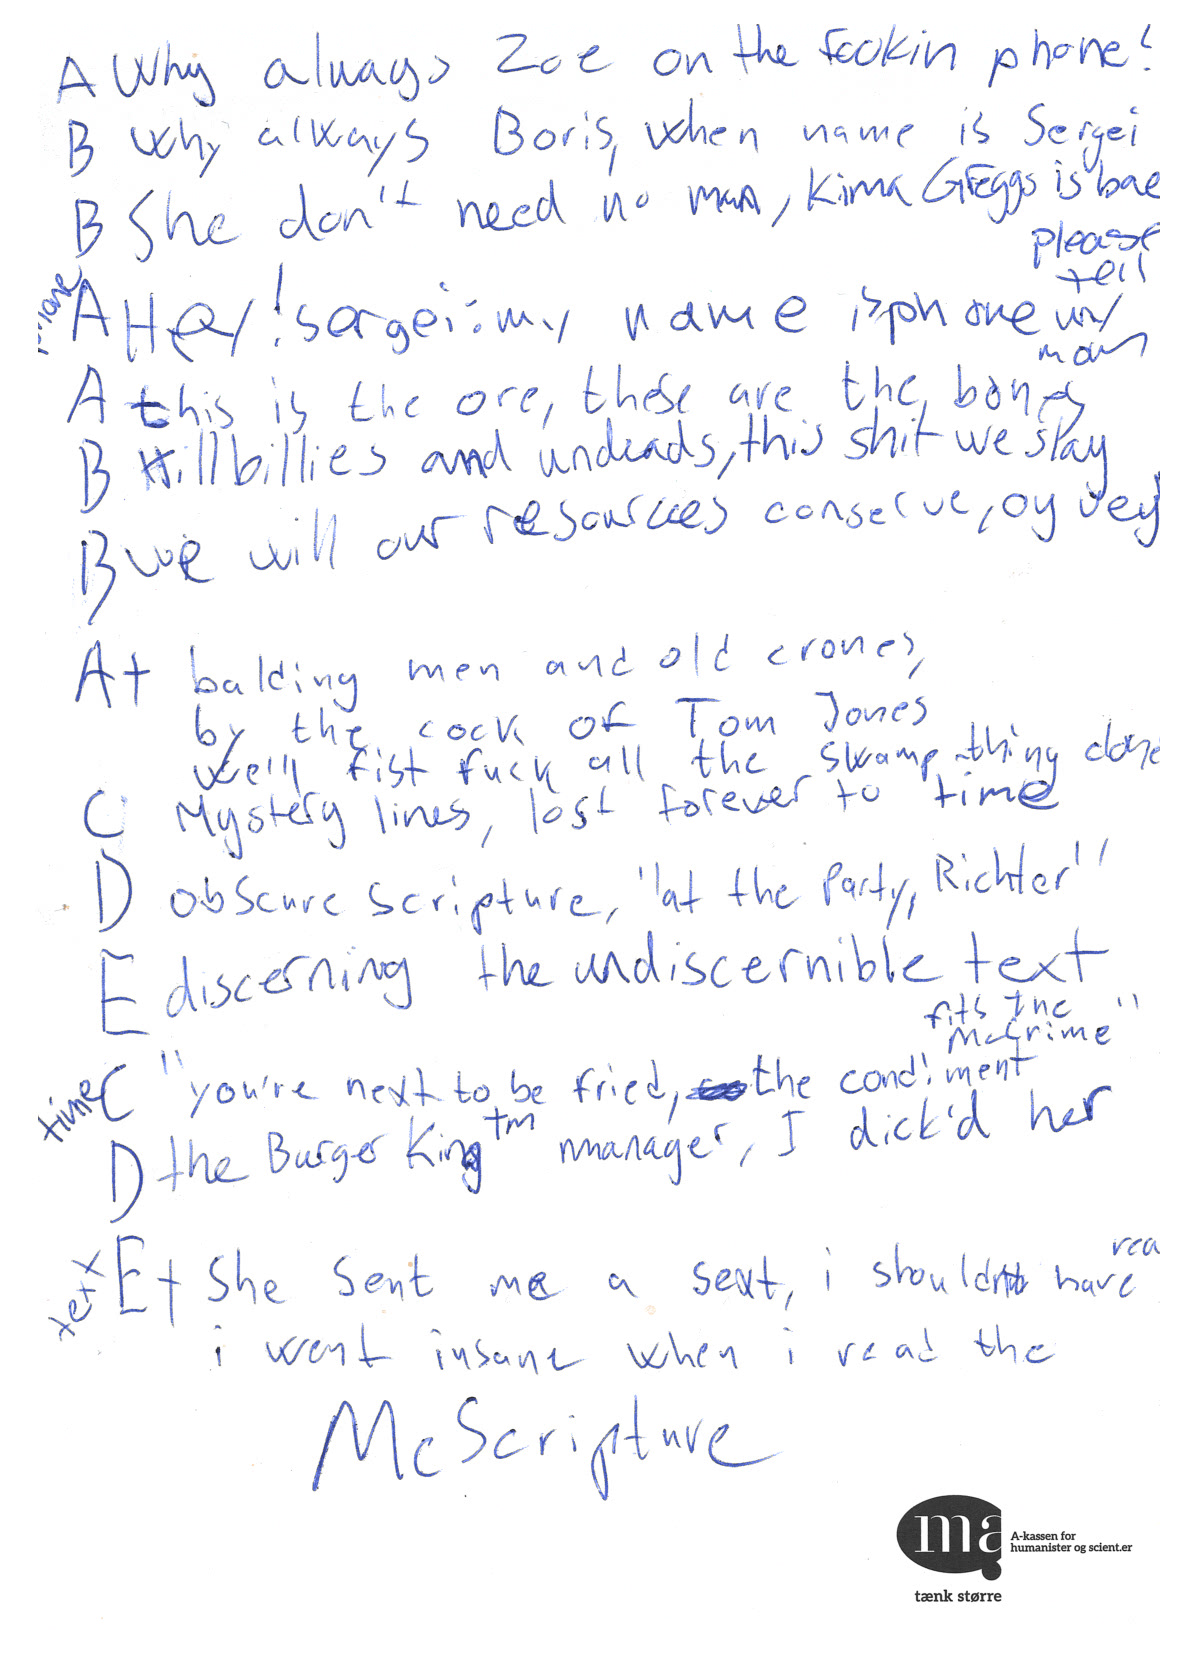 A Why always Zoe on the fookin phone?
B Why always Boris, when name is Sergei
B She don't need no man, Kima Greggs is bae
please
tell
phone A Hey! sergei: my name isphone my
mom
A this is the ore, these are the bones
B Hillbillies and undeads, this shit we slay
B we will our resources conserve, oy vey
A+ balding men and old crones,
by the cock of Tom Jones
we'll fist fuck all the swamp thing clones
C Mystery lines, lost forever to time
D obscure scripture, "at the Party, Richter"
E discerning the undiscernible text
fits the
McCrime"
time C "you're next to be fried, the condiment
D the Burger King™ manager, I dick'd her
text E+ She sent me a sext, i shouldn't have rea
i went insane when i read the
McScripture
ma A-kassen for
humanister og scient.er
tænk større